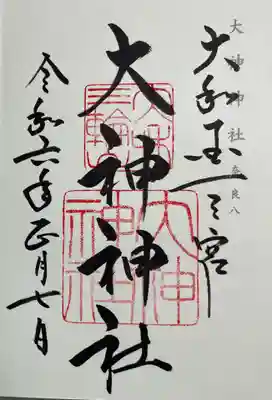 大神神社 奈良八
大和国一之宮
大神神社
令和六年正月七日
三輪
大神神社